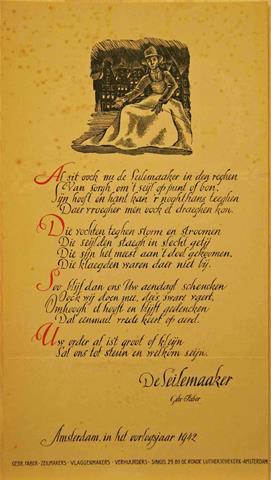 Al sit oock nu de Seilemaaker in den reghen
Van sorgh om 't seijl op punt of bon.
Sijn hooft en hant kan 'r noghthans teeghen
Daer vroegher men oock el draeghen kon.
Die vochten teghen storm en stroomen
Die seijlden staegh in slecht getij
Die sijn het meest aan 't doel gekoomen.
Die klaegden waren daer niet bij.
Soo blijf dan ons Uw aendagt schencken
Oock wij doen mee, dees sware vaert,
Omhoogh el hooft en blijft gedencken
Dat eenmael vrede keert op aerd.
Uw order al ist groot of kleijn
Sal ons tot steun en welkom seijn.
De Seilemaaker
Gebr. Faber
Amsterdam, in het oorlogsjaar 1942
GEBR. FABER - ZEILMAKERS - VLAGGENMAKERS - VERHUURDERS - SINGEL 29 BIJ DE RONDE LUTHERSCHE KERK - AMSTERDAM